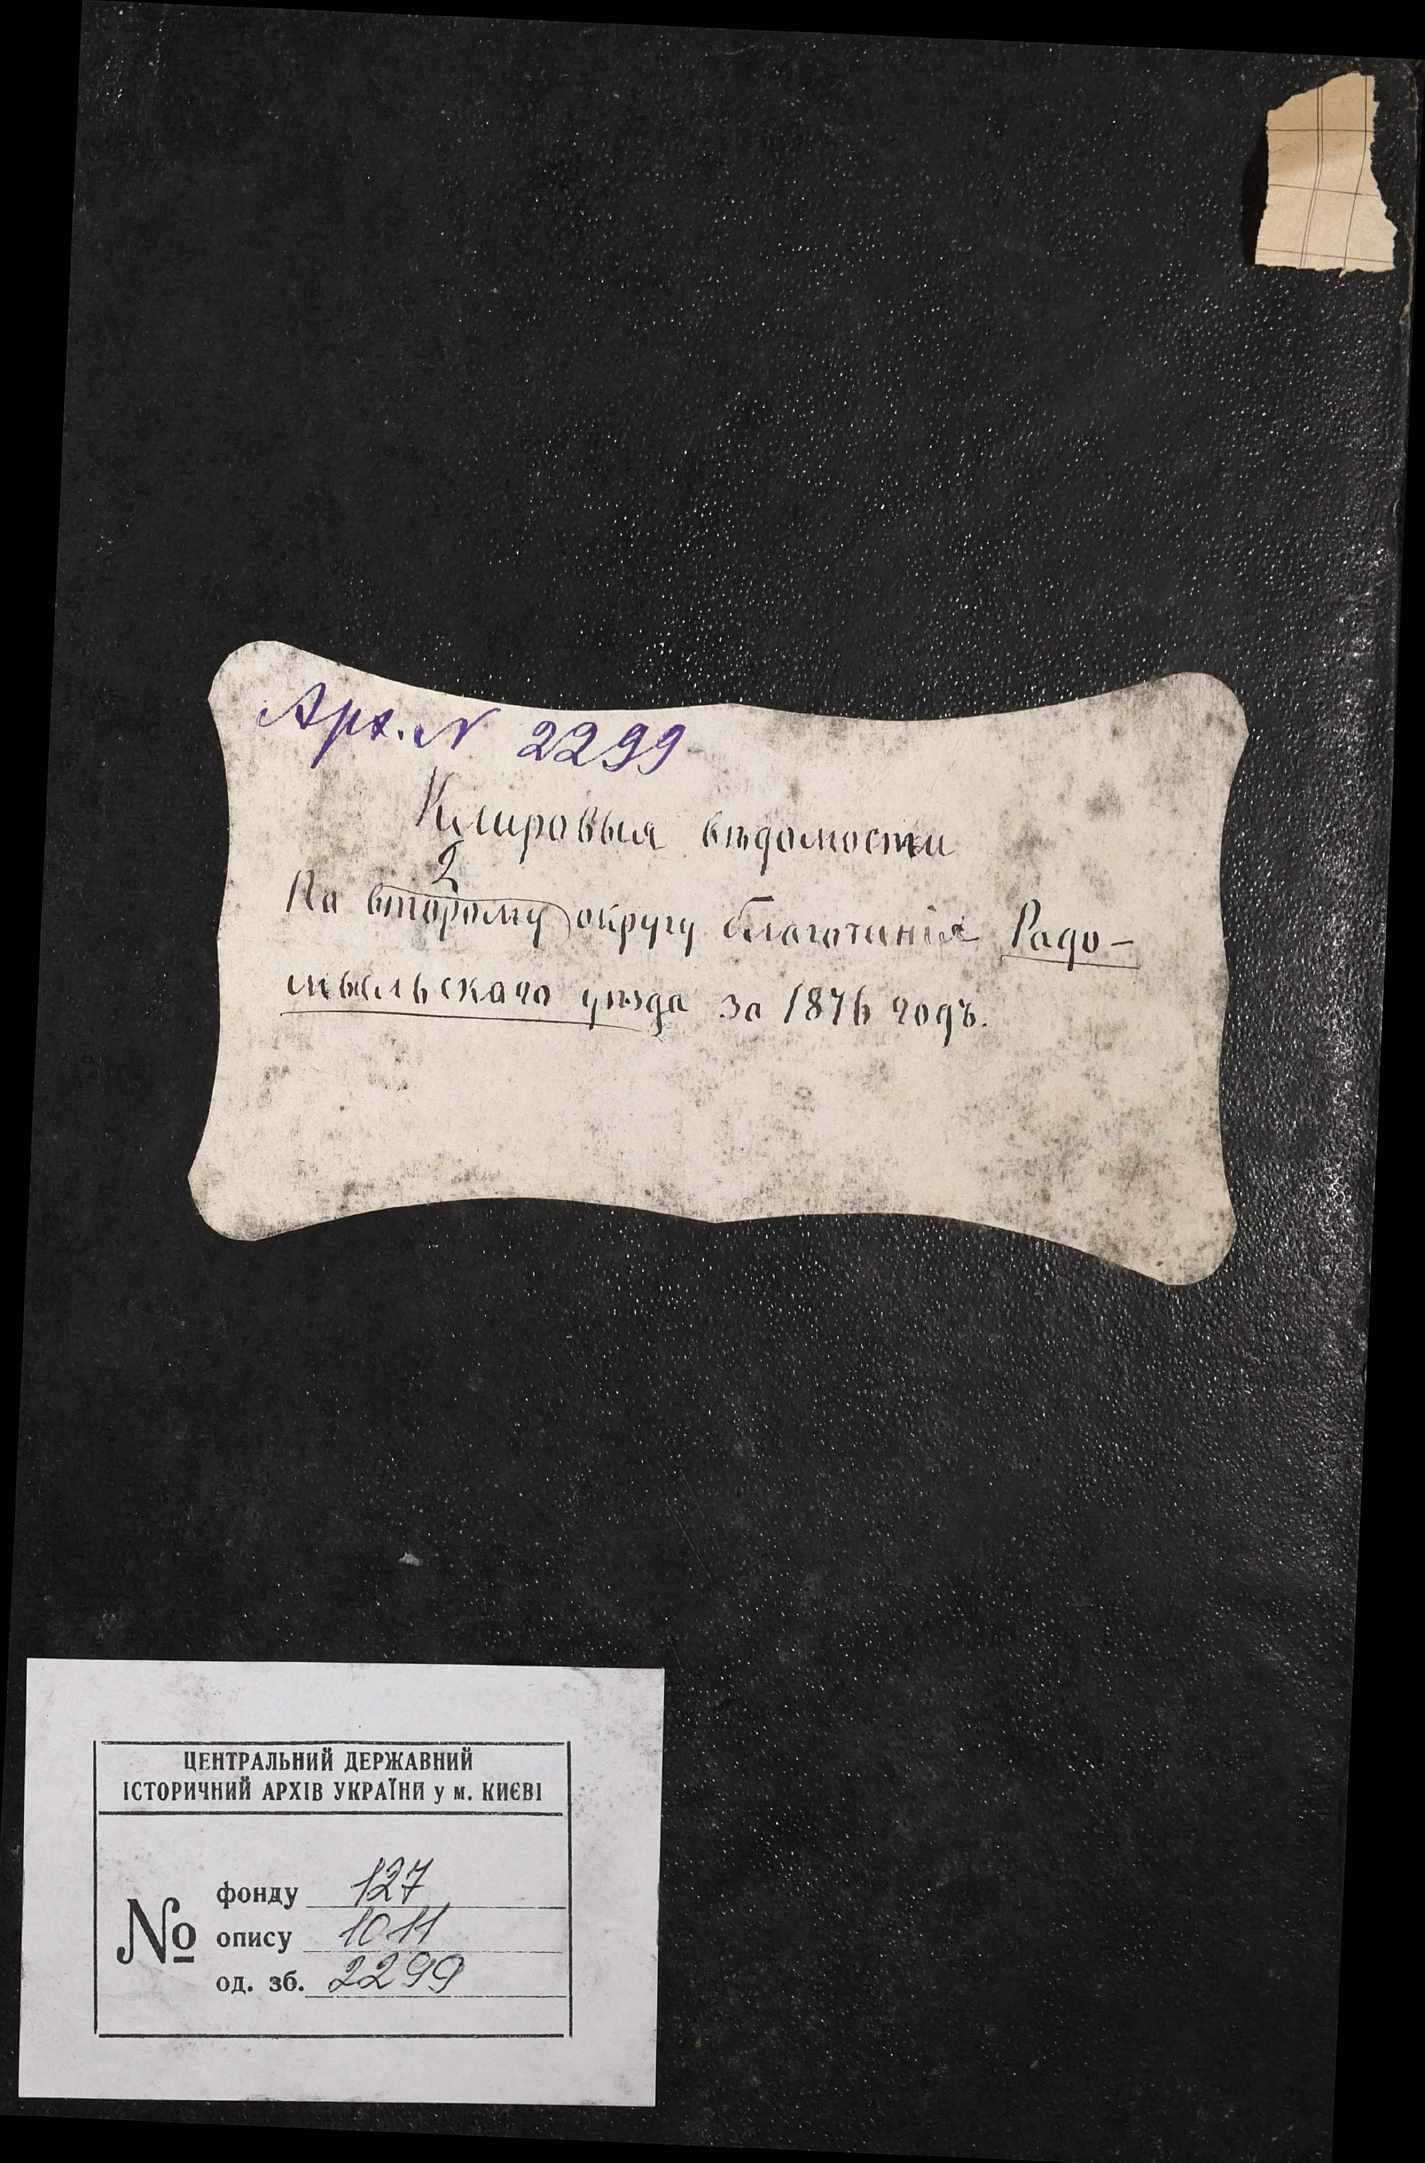 Арх. № 2299
Клировыя вѣдомости
2
По второму округу благочинія Радо-
мысльскаго уѣзда за 1876 годъ.
ЦЕНТРАЛЬНИЙ ДЕРЖАВНИЙ
ІСТОРИЧНИЙ АРХІВ УКРАЇНИ у м. КИЄВІ
№
фонду 127
опису 1011
од. зб. 2299